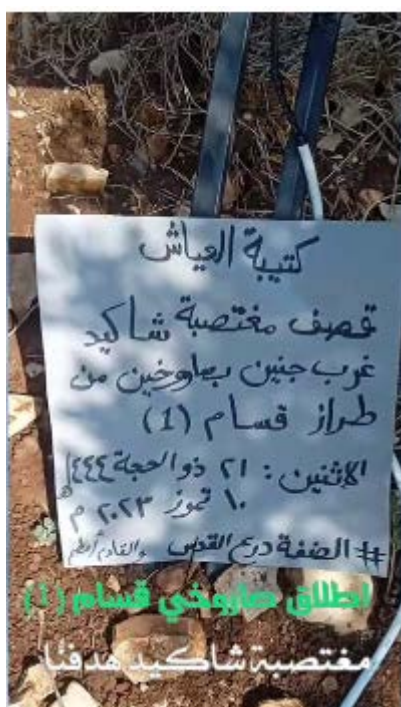 كتيبة العياش
قصف مغتصبة شاكيد
غرب جنين بصاروخين من
طراز قسام (1)
الاثنين : ٢١ ذو الحجة ١٤٤٤ هـ
١٠ تموز ٢٠٢٣ م
#الضفة درع القدس والقادم أعظم
اطلاق صاروخي قسام (1)
مغتصبة شاكيد هدفنا